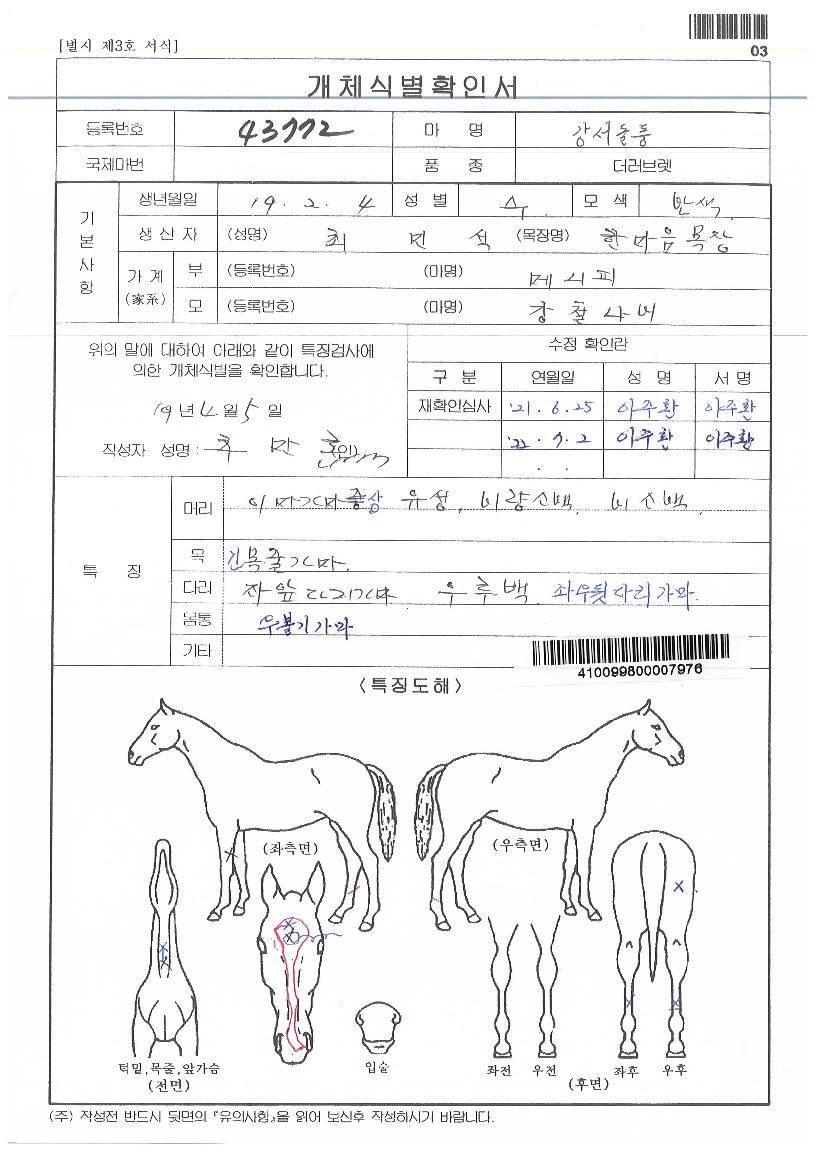 [별지 제3호 서식]
03
개체식별확인서
등록번호 43772 마 명 강서돌풍
국제마번 품 종 더러브렛
기본사항
생년월일 19. 2. 4 성 별 수 모 색 밤색
생 산 자 (성명) 최 민 식 (목장명) 한마음목장
가 계 (家系)
부 (등록번호) (마명) 메니피
모 (등록번호) (마명) 강철나비
위의 말에 대하여 아래와 같이 특징검사에
의한 개체식별을 확인합니다.
19년 4월 5일
작성자 성명: (인)
수정 확인란
구 분 연월일 성 명 서 명
재확인심사 '21. 6. 25 이주환 이주환
'22. 7. 2 이주환 이주환
. .
특 징
머리 이마가마 상 유성, 비량소백, 비소백.
목 긴목줄가마.
다리 좌앞다리가마 우후백. 좌우뒷다리가마.
몸통 우볼기가마
기타
410099800007976
<특징도해>
(좌측면)
(우측면)
턱밑,목줄,앞가슴
(전면)
입술
좌전 우전 좌후 우후
(후면)
(주) 작성전 반드시 뒷면의 『유의사항』을 읽어 보신후 작성하시기 바랍니다.